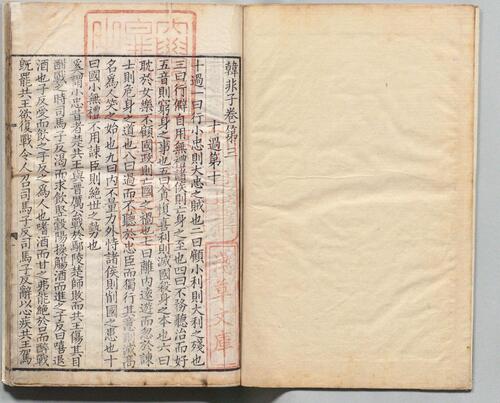 韓非子卷第三
十過第十
十過一曰行小忠則大忠之賊也二曰顧小利則大利之殘也
三曰行僻自用無禮諸侯則亡身之至也四曰不務聽治而好
五音則窮身之事也五曰貪愎喜利則滅國殺身之本也六曰
耽於女樂不顧國政則亡國之禍也七曰離內遠遊而忽於諫
士則危身之道也八曰過而不聽於忠臣而獨行其意則滅高
名為人笑之始也九曰內不量力外恃諸侯則削國之患也十
曰國小無禮不用諫臣則絕世之勢也
奚謂小忠昔者楚共王與晉厲公戰於鄢陵楚師敗而共王傷其目
酣戰之時司馬子反渴而求飲豎穀陽操觴酒而進之子反曰嘻退
酒也子反受而飲之子反之為人也嗜酒而甘之弗能絕於口而醉戰
既罷共王欲復戰令人召司馬子反司馬子反辭以心疾共王駕
淺草文庫